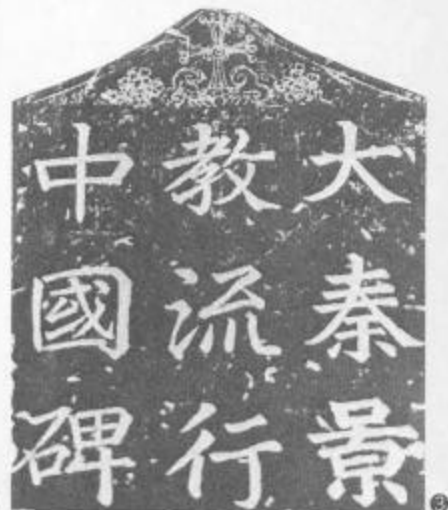 大秦景
教流行
中國碑
❸